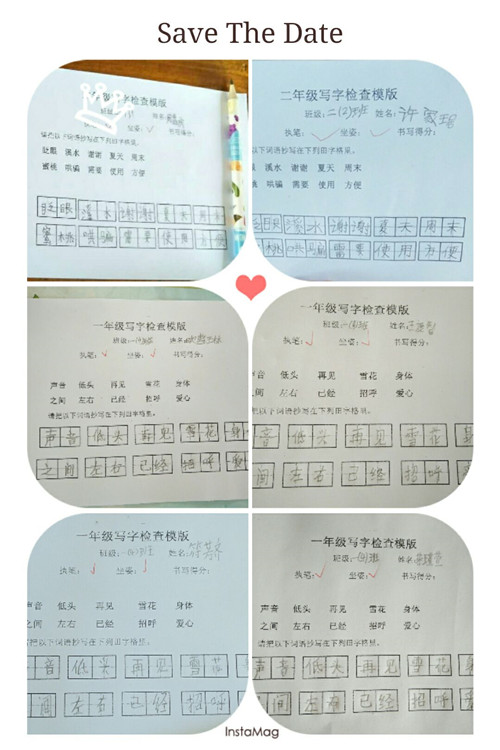 Save The Date
二年级写字检查模版
班级:
姓名:
执笔: ✓ 坐姿: ✓
请把以下词语抄写在下列田字格里。
眨眼 溪水 谢谢 夏天 周末
蜜桃 哄骗 需要 使用 方便
眨眼 溪水 谢谢 夏天 周末
蜜桃 哄骗 需要 使用 方便
二年级写字检查模版
班级: 二(2)班 姓名: 许
执笔: ✓ 坐姿: ✓ 书写得分:
以下词语抄写在下列田字格里。
溪水 谢谢 夏天 周末
哄骗 需要 使用 方便
眨眼 溪水 谢谢 夏天 周末
桃 哄骗 需要 使用 方便
一年级写字检查模版
班级: 姓名:
执笔: ✓ 坐姿: ✓ 书写得分:
声音 低头 再见 雪花 身体
之间 左右 已经 招呼 爱心
请把以下词语抄写在下列田字格里。
声音 低头 再见 雪花 身
之间 左右 已经 招呼 爱
一年级写字检查模版
班级: 姓名:
执笔: ✓ 坐姿: ✓ 书写得分:
声音 低头 再见 雪花 身体
之间 左右 已经 招呼 爱心
把以下词语抄写在下列田字格里。
音 低头 再见 雪花 身
间 左右 已经 招呼
一年级写字检查模版
班级: 姓名:
执笔: ✓ 坐姿: ✓ 书写得分:
声音 低头 再见 雪花 身体
之间 左右 已经 招呼 爱心
把以下词语抄写在下列田字格里。
音 低头 再见 雪花
间 左右 已经 招呼
一年级写字检查模版
班级: 姓名:
执笔: ✓ 坐姿: ✓ 书写得分:
声音 低头 再见 雪花 身体
之间 左右 已经 招呼 爱心
请把以下词语抄写在下列田字格里。
声音 低头 再见 雪花 身
间 左右 已经 招呼 爱
InstaMag